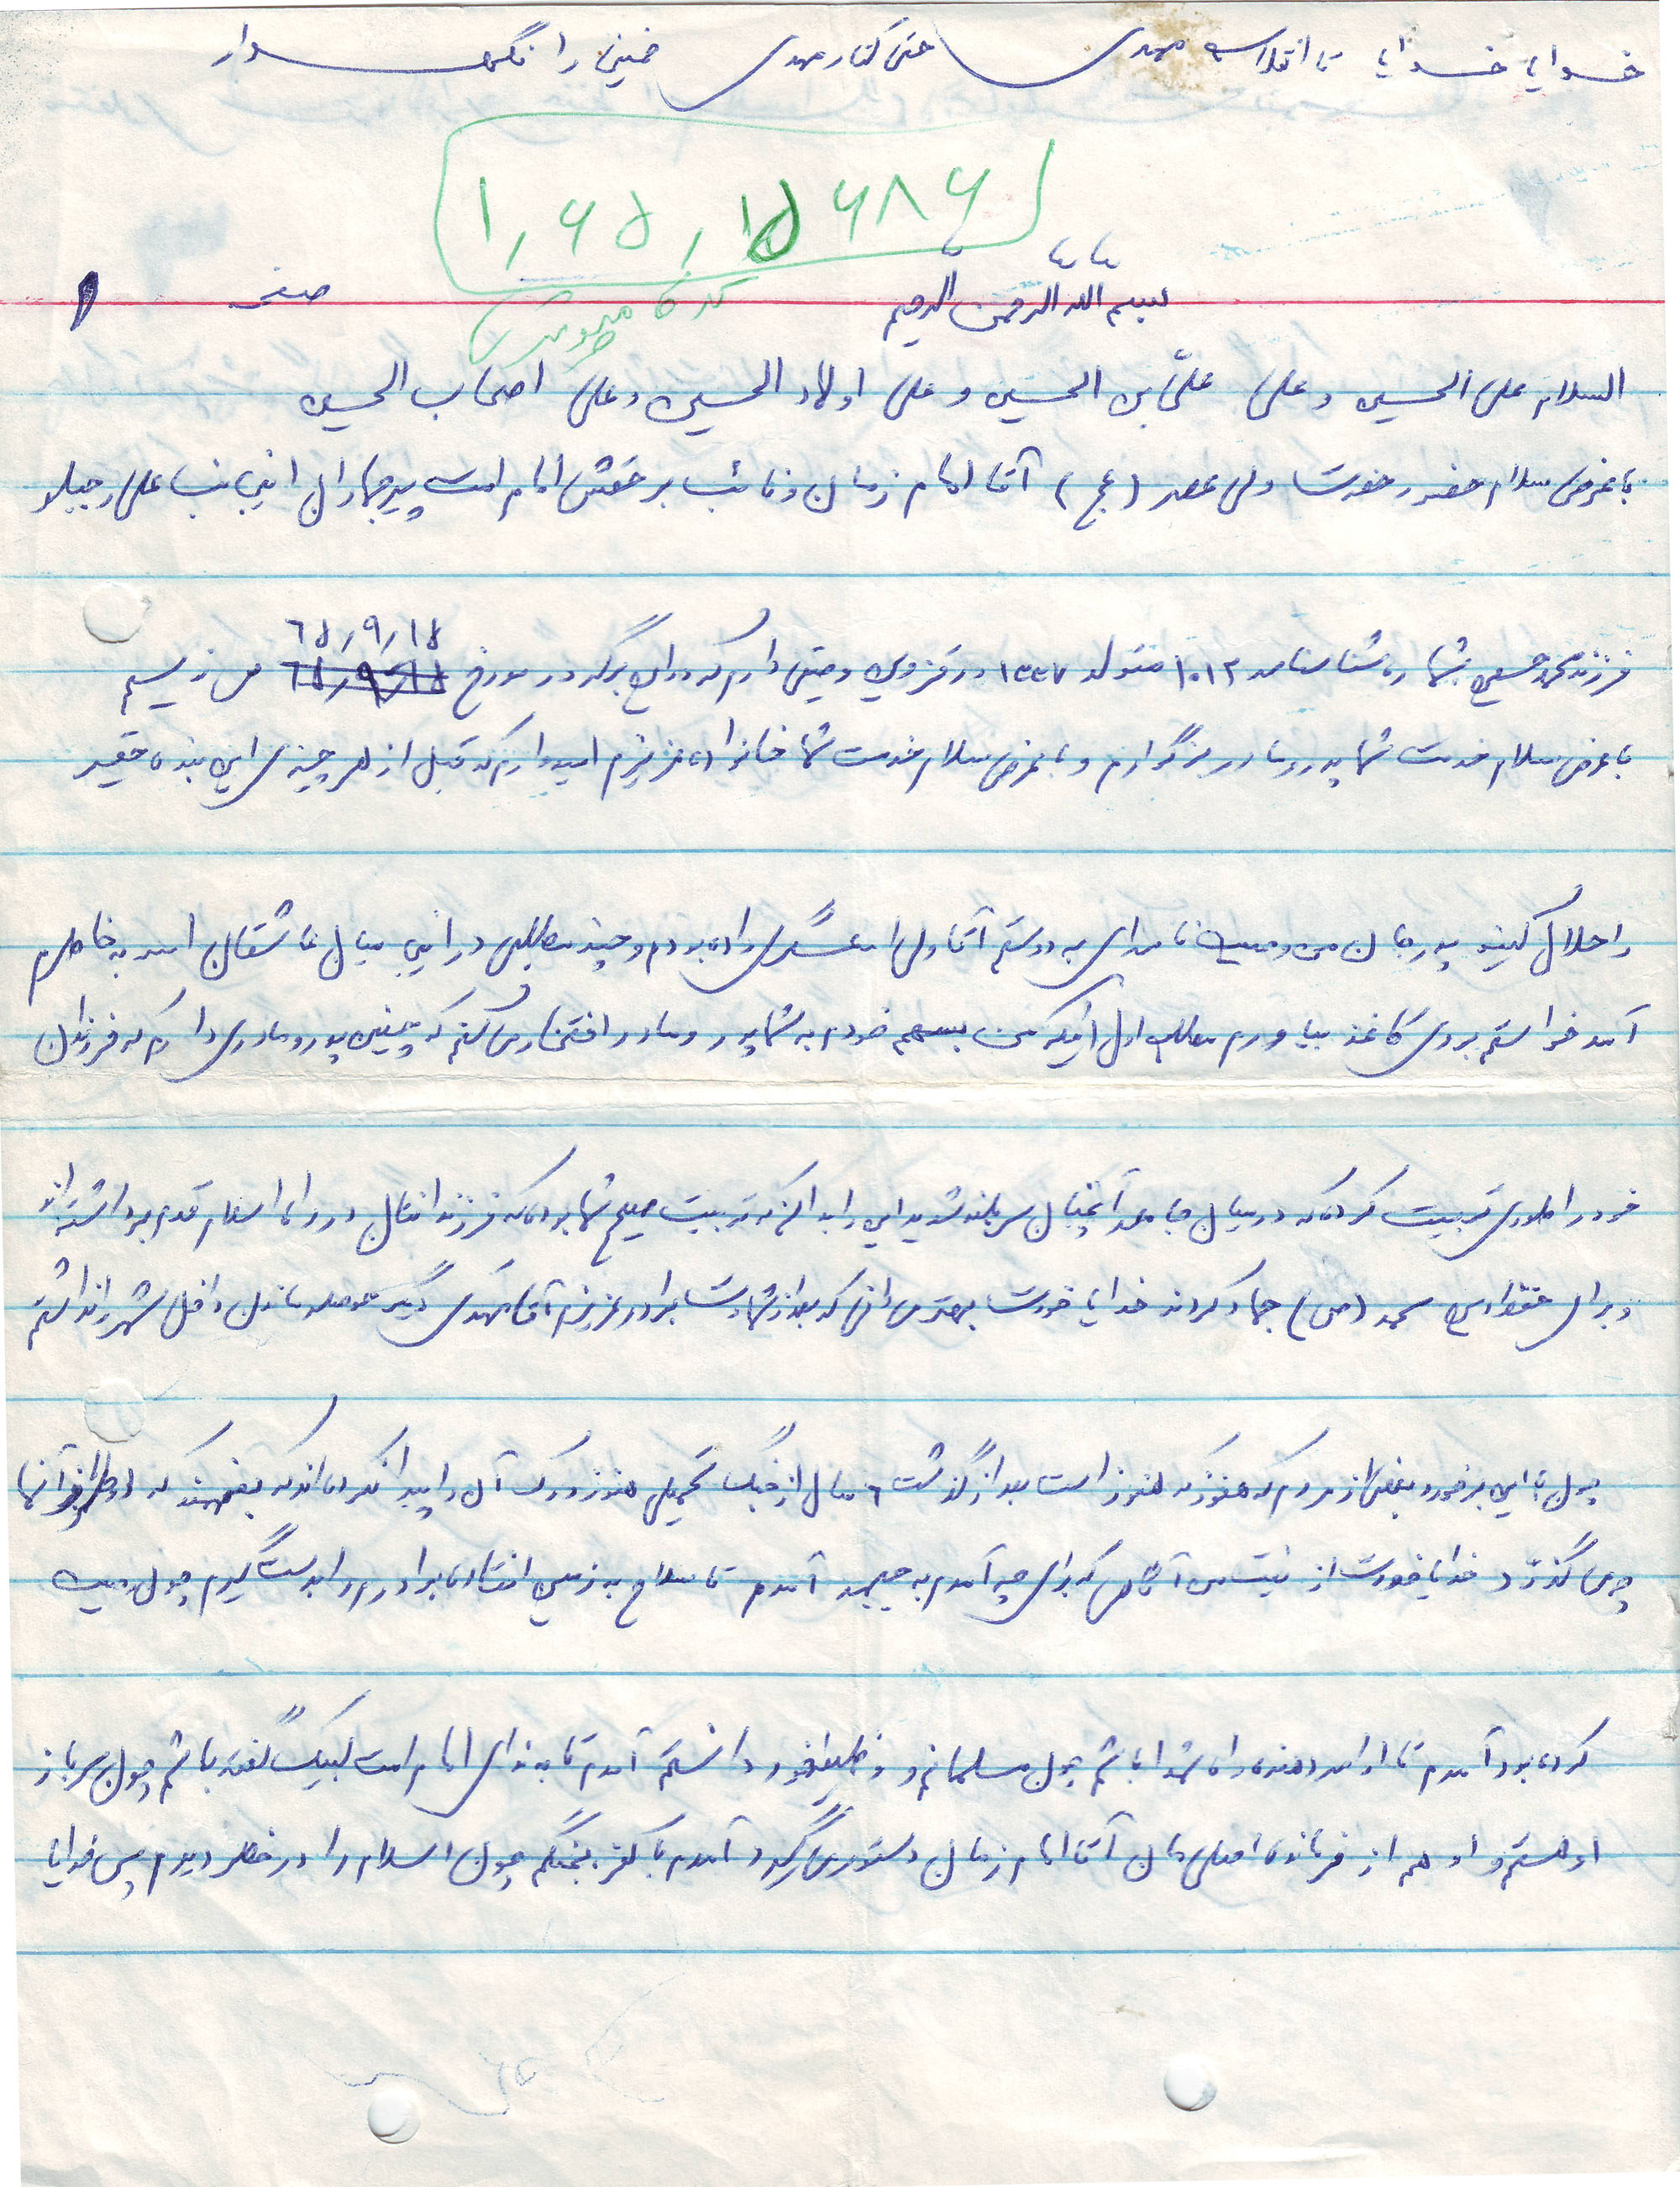 خدایا خدایا تا انقلاب مهدی حتی کنار مهدی خمینی را نگهدار
۱٫۶۵٫۱۵۶۸۶
کد کامپیوتری
بسم الله الرحمن الرحیم
صفحه ۱
السلام علی الحسین و علی علیّ بن الحسین و علی اولاد الحسین و علی اصحاب الحسین
با عرض سلام حضور حضرت ولی عصر (عج) آقا امام زمان و نائب بر حقش امام امت پیر جماران اینجانب علی رجبلو
۶۵٫۹٫۱۵
فرزند محمدحسین بشماره شناسنامه ۱۰۱۲ متولد ۱۳۴۷ در قزوین وصیتی دارم که در این برگه در مورخ می نویسم
با عرض سلام خدمت شما پدر و مادر بزرگوارم و با عرض سلام خدمت شما خانواده عزیزم امیدوارم که قبل از هر چیزی این بنده حقیر
را حلال کنید پدر جان من وصیت نامه ای به دوستم آقا ولی داده بودم و چند مطلبی در این میان عاشقان الله به خاطرم
آمد خواستم بروی کاغذ بیاورم مطلب اول اینکه من بسهم خودم به شما پدر و مادر افتخار می کنم که چنین پدر و مادری دارم که فرزندان
خود را طوری تربیت کرده که در میان جامعه آنچنان سربلند شدید این را بدانم که تربیت صحیح شما بوده که فرزندانتان در راه اسلام قدم برداشته‌اند
و برای حفظ دین محمد (ص) جهاد کردند خدایا خودت بهتر می دانی که بعد از شهادت برادر عزیزم آقا مهدی دیگر حوصله ماندن داخل شهر را نداشتم
چون با این برخورد بعضی از مردم که هنوز که هنوز است بعد از گذشت ۶ سال از جنگ تحمیلی هنوز درک آن را پیدا نکرده‌اند که بفهمند که در اطراف آنها
چه می گذرد خدایا خودت از نیتم آگاهی که برای چه آمدم به جبهه آمدم تا سلاح به زمین افتاده برادرم را بدست گیرم چون وصیت
کرده بود آمدم تا ادامه دهنده راه شهدا باشم چون مسلمانم و وظیفه خود دانستم آمدم تا به ندای امام امت لبیک گفته باشم چون سرباز
او هستم و او هم از فرمانده اصلی مان آقا امام زمان دستور می گیرد آمدم با کفر بجنگم چون اسلام را در خطر دیدم پس خدایا